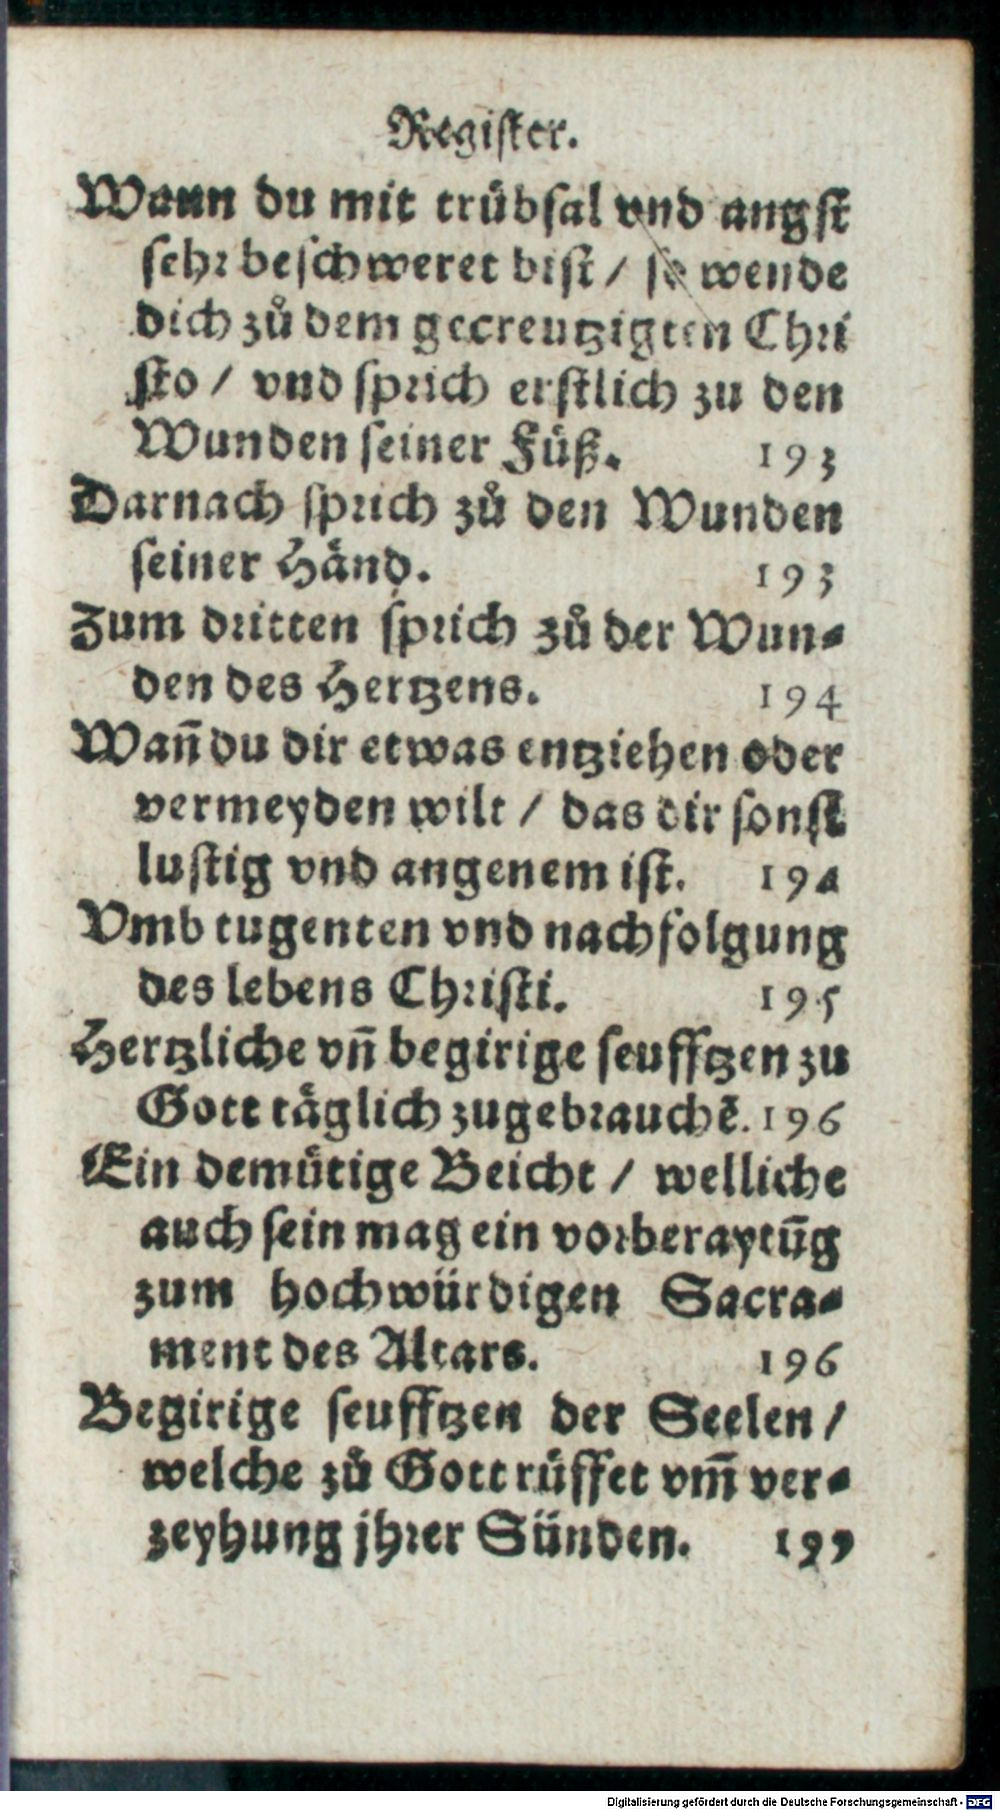 Register.
Wann du mit trübsal vnd angst
sehr beschweret bist / so wende
dich zů dem gecreutzigten Chri
sto / vnd sprich erstlich zu den
Wunden seiner Füß. 193
Darnach sprich zů den Wunden
seiner Händ. 193
Zum dritten sprich zů der Wun-
den des Hertzens. 194
Wañ du dir etwas entziehen oder
vermeyden wilt / das dir sonst
lustig vnd angenem ist. 194
Vmb tugenten vnd nachfolgung
des lebens Christi. 195
Hertzliche vñ begirige seufftzen zu
Gott täglich zugebrauchē. 196
Ein demütige Beicht / welliche
auch sein mag ein vorberaytūg
zum hochwürdigen Sacra-
ment des Altars. 196
Begirige seufftzen der Seelen /
welche zů Gott rüffet vm̄ ver-
zeyhung jhrer Sünden. 199
Digitalisierung gefördert durch die Deutsche Forschungsgemeinschaft - DFG